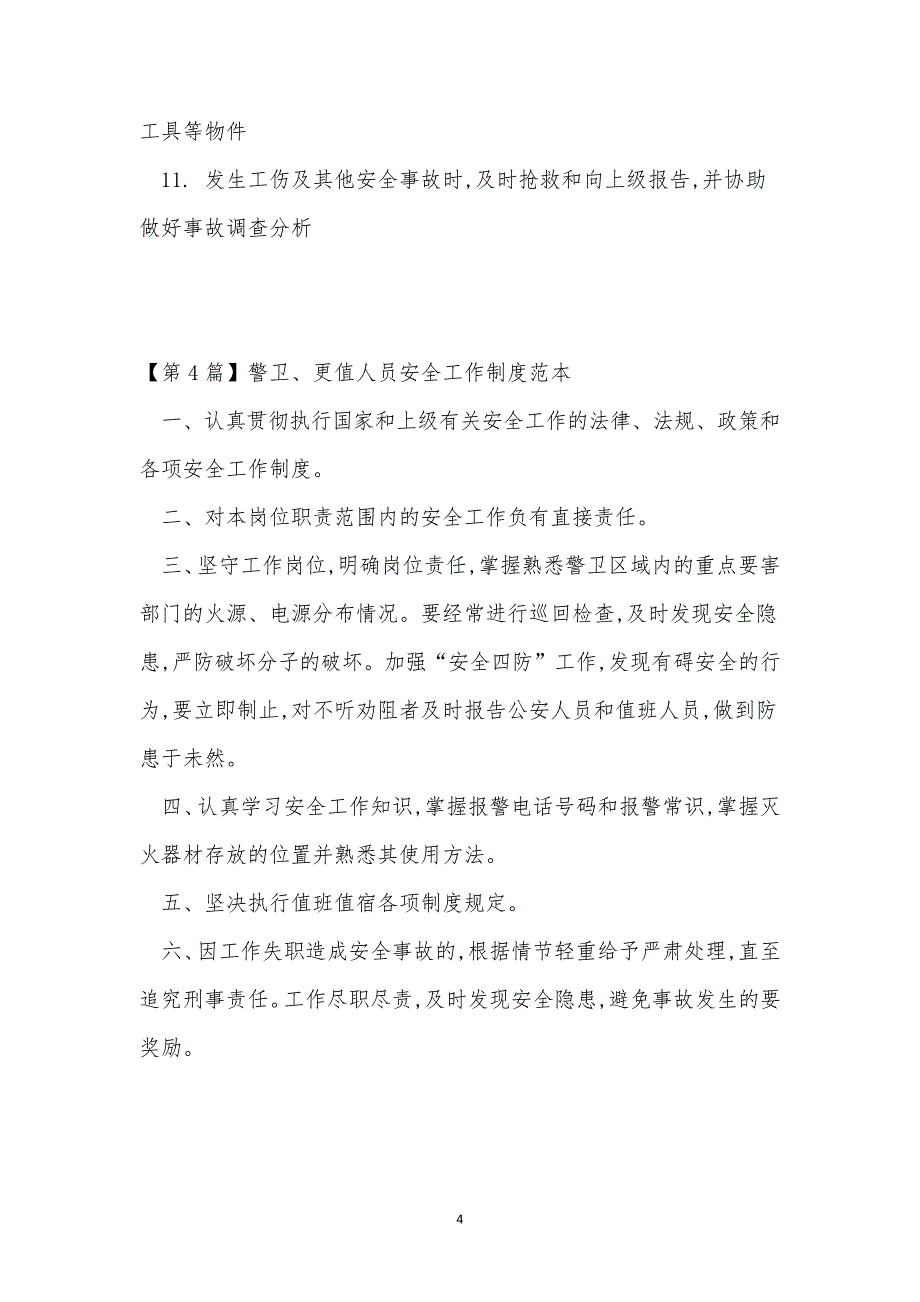 工具等物件
11. 发生工伤及其他安全事故时,及时抢救和向上级报告,并协助
做好事故调查分析
【第4篇】警卫、更值人员安全工作制度范本
一、认真贯彻执行国家和上级有关安全工作的法律、法规、政策和
各项安全工作制度。
二、对本岗位职责范围内的安全工作负有直接责任。
三、坚守工作岗位,明确岗位责任,掌握熟悉警卫区域内的重点要害
部门的火源、电源分布情况。要经常进行巡回检查,及时发现安全隐
患,严防破坏分子的破坏。加强“安全四防”工作,发现有碍安全的行
为,要立即制止,对不听劝阻者及时报告公安人员和值班人员,做到防
患于未然。
四、认真学习安全工作知识,掌握报警电话号码和报警常识,掌握灭
火器材存放的位置并熟悉其使用方法。
五、坚决执行值班值宿各项制度规定。
六、因工作失职造成安全事故的,根据情节轻重给予严肃处理,直至
追究刑事责任。工作尽职尽责,及时发现安全隐患,避免事故发生的要
奖励。
4